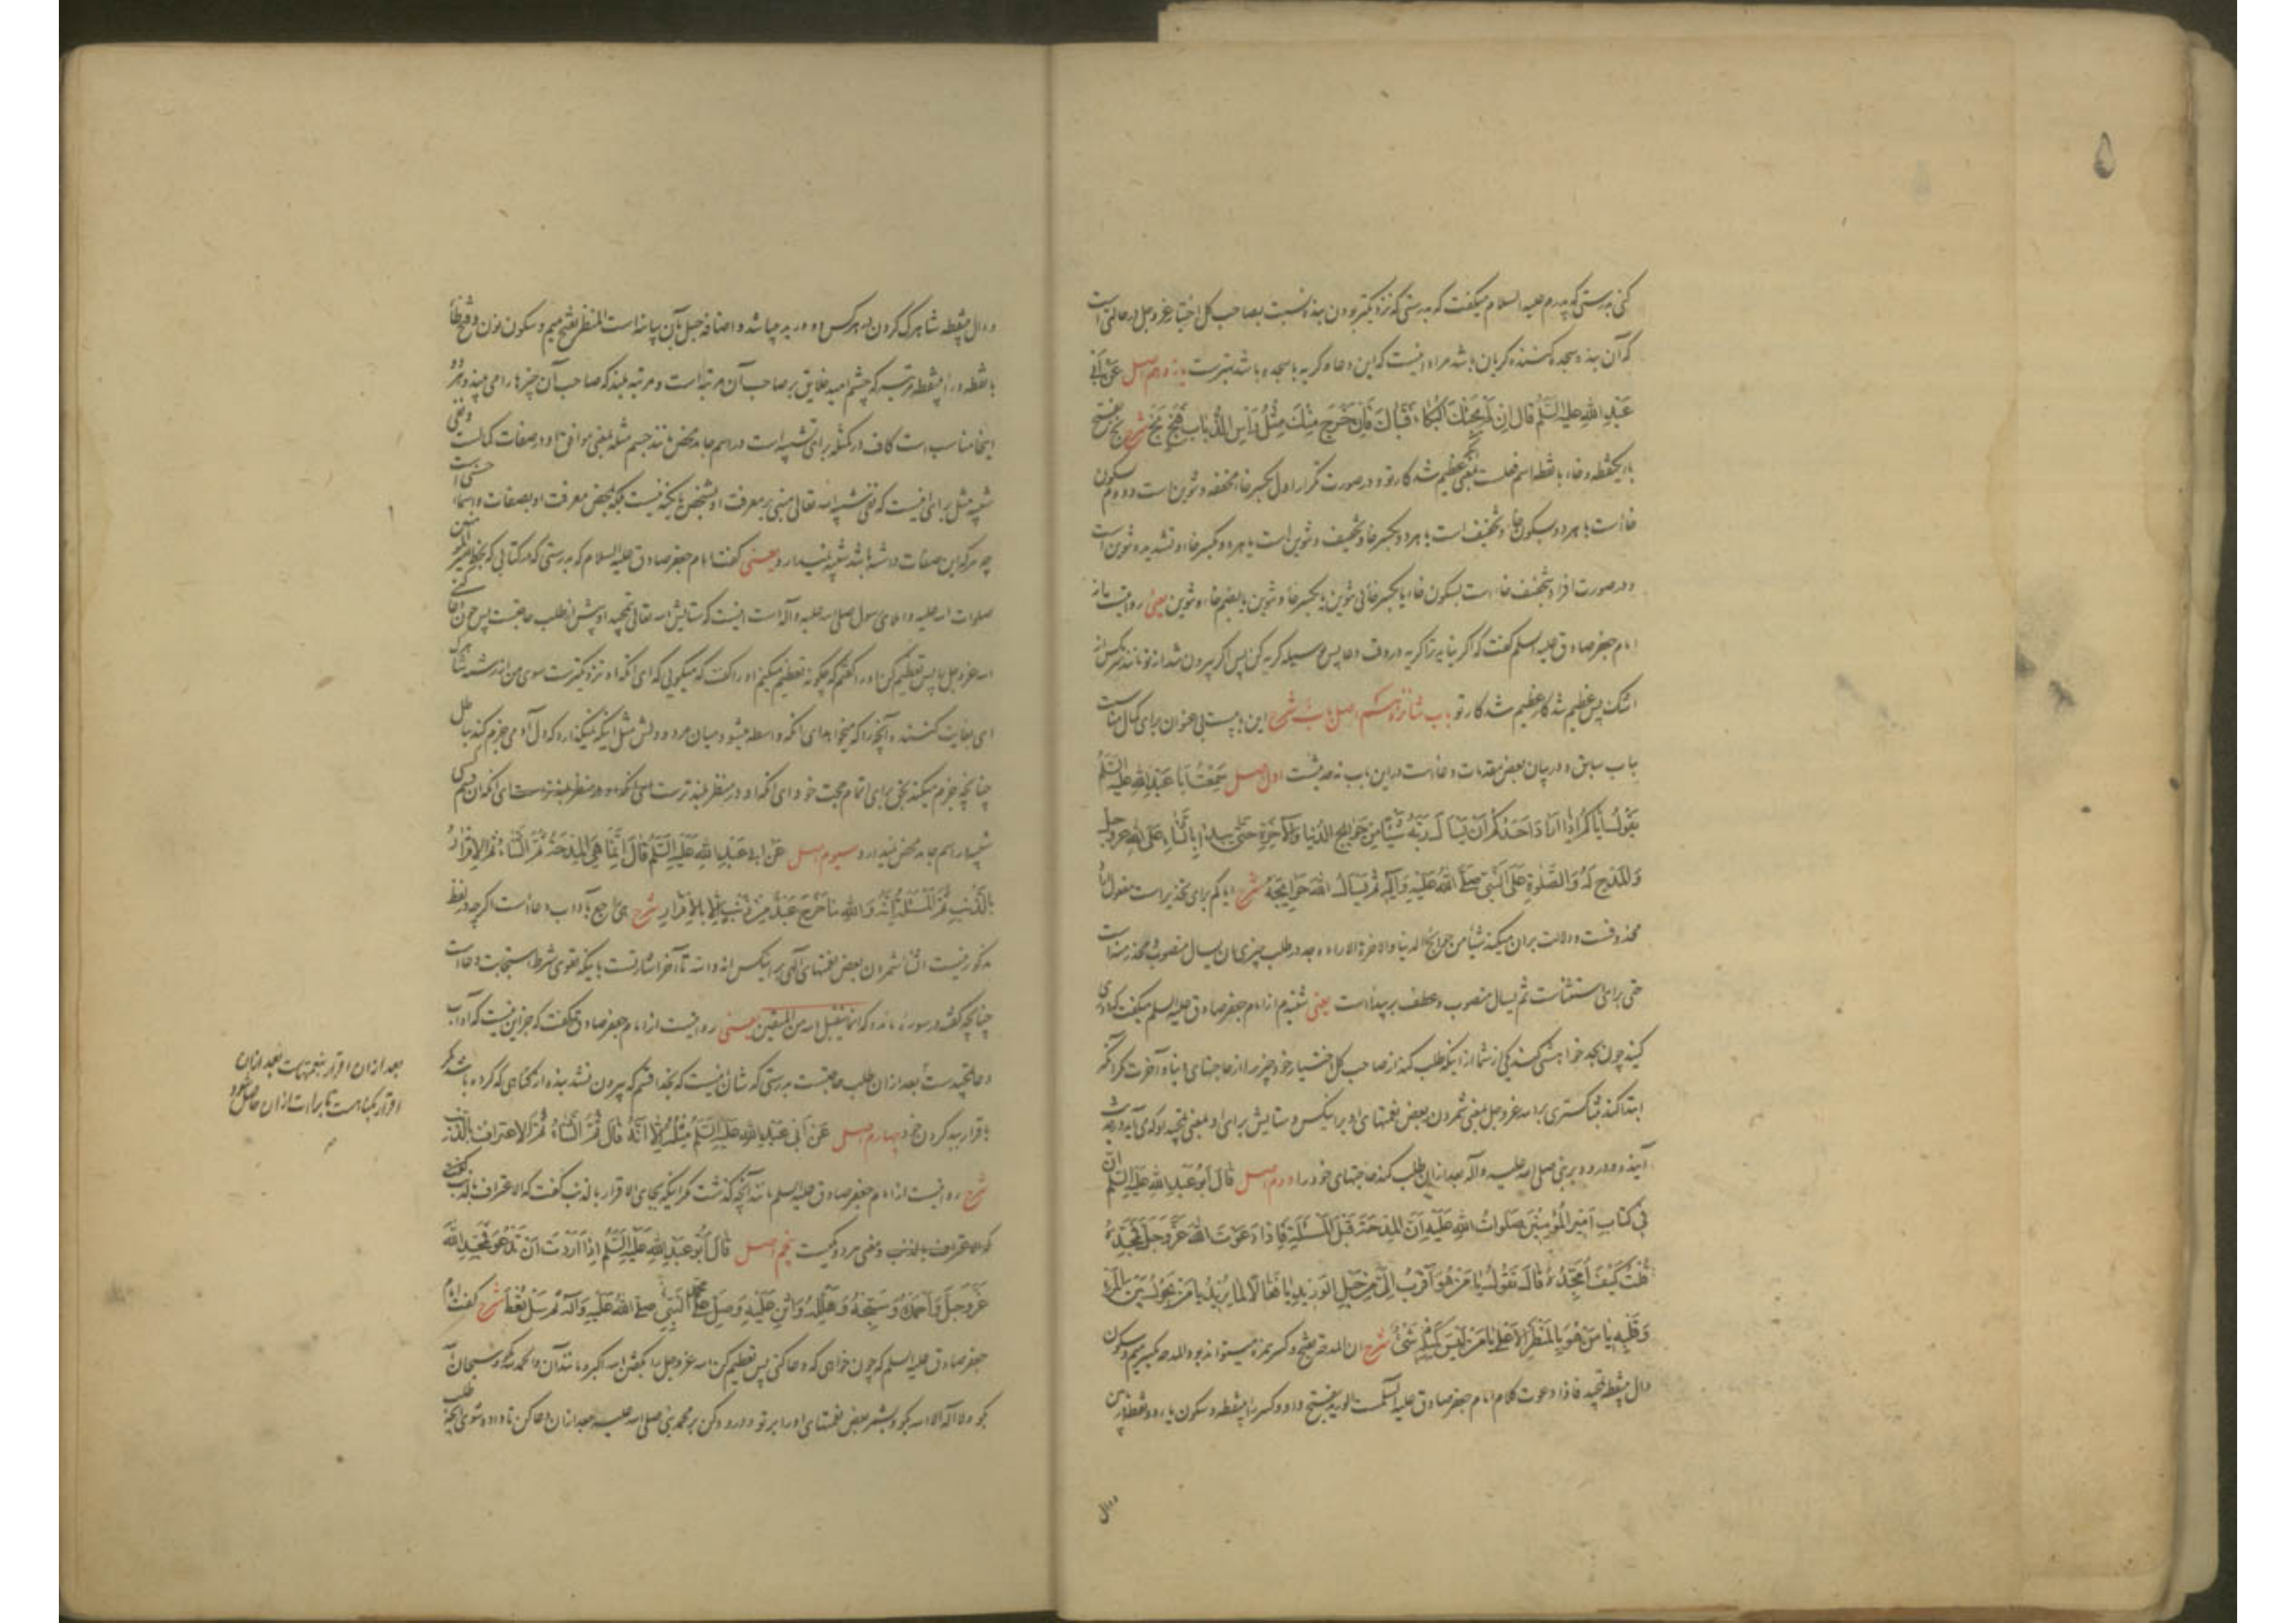 کنی بدرستی که پدرم علیه السلام میگفت که بدرستی که نزدیکتر بودن بنده نسبت بصاحب کل اختیار عز و جل در حالتی است
که آن بنده سجده کننده گریان باشد مراد اینست که این دعا و گریه با سجده باشد بهترست یازدهم اصل عَنْ أَبِي
عَبْدِ اللهِ عَلَيْهِ السَّلَمُ قَالَ إِنْ لَمْ يَجِئْكَ الْبُكَاءُ فَتَبَاكَ فَإِنْ خَرَجَ مِنْكَ مِثْلُ رَأْسِ الذُّبَابِ فَبَخٍ بَخٍ شرح بخ بفتح
بای یکنقطه و خاء با نقطه اسم فعلست بمعنی عظیم شد کار تو و در صورت تکرار اول بکسر خاء مخففه و تنوین است و دوم بسکون
خاء است یا هر دو بسکون خاء و تخفیف است یا هر دو بکسر خا و تخفیف و تنوین است یا هر دو بکسر خاء و تشدید و تنوین است
و در صورت افراد بتخفیف خاء است بسکون خاء یا بکسر خا بی تنوین یا بکسر خا و تنوین یا بضم خاء و تنوین یعنی روایت از
امام جعفر صادق علیه السلم گفت که اگر نیاید ترا گریه در وقت دعا پس وسیله گریه کن پس اگر بیرون شد از تو مانند سر مگس از
اشک پس عظیم شد کار عظیم شد کار تو باب شانزدهم اصل باب شرح این بابیست بی عنوان برای کمال مناسبت
باب سابق و در بیان بعض مقدمات دعاست در این باب نه حدیثست اول اصل سَمِعْتُ أَبَا عَبْدِ اللهِ عَلَيْهِ السَّلَمُ
يَقُولُ إِيَّاكُمْ إِذَا أَرَادَ أَحَدُكُمْ أَنْ يَسْأَلَ رَبَّهُ شَيْئًا مِنْ حَوَائِجِ الدُّنْيَا وَالْآخِرَةِ حَتَّى يَبْدَأَ بِالثَّنَاءِ عَلَى اللهِ عَزَّ وَجَلَّ
وَالْمَدْحِ لَهُ وَالصَّلَوةِ عَلَى النَّبِيِّ صَلَّى اللهُ عَلَيْهِ وَآلِهِ ثُمَّ يَسْأَلُ اللهَ حَوَائِجَهُ شرح ایاکم برای تحذیر است مفعول
محذوفست و دلالت بران میکند شیئا من حوائج الدنیا والاخرة الاراده جد در طلب چیزی ان یسال منصوب محذر منه است
حتی برای استثناست ثم یسال منصوب و عطف بر یبدا است یعنی شنیدم از امام جعفر صادق علیه السلم میگفت که دوری
کنید چون بجد خواهش کند یکی از شما از اینکه طلب کند از صاحب کل اختیار خود چیزی را از حاجتهای دنیا و آخرت مگر آنکه
ابتدا کند بثنا گستری بر الله عز و جل یعنی شمردن بعض نعمتهای او برای کس و ستایش برای او یعنی تمجید او که می آید در حدیث
آینده و درود بر نبی صلی الله علیه و آله بعد از ان طلب کند حاجتهای خود را دوم اصل قَالَ أَبُو عَبْدِ اللهِ عَلَيْهِ السَّلَمُ إِنَّ
فِي كِتَابِ أَمِيرِ الْمُؤْمِنِينَ صَلَوَاتُ اللهِ عَلَيْهِ أَنَّ الْمِدْحَةَ قَبْلَ الْمَسْئَلَةِ فَإِذَا دَعَوْتَ اللهَ عَزَّ وَجَلَّ فَمَجِّدْهُ
قُلْتُ كَيْفَ أُمَجِّدُهُ قَالَ تَقُولُ يَا مَنْ هُوَ أَقْرَبُ إِلَيَّ مِنْ حَبْلِ الْوَرِيدِ يَا فَعَّالًا لِمَا يُرِيدُ يَا مَنْ يَحُولُ بَيْنَ الْمَرْءِ
وَقَلْبِهِ يَا مَنْ هُوَ بِالْمَنْظَرِ الْأَعْلَى يَا مَنْ لَيْسَ كَمِثْلِهِ شَيْءٌ شرح ان المدحة بفتح و کسر همزه میتواند بود المدحه بکسر میم و سکون
دال بینقطه تمجید فاذا دعوت کلام امام جعفر صادق علیه السلمست الورید بفتح واو و کسر راء بینقطه و سکون یاء دو نقطه در پایین
و دال
و دال بینقطه شاهرگ گردن و هر کس را دو ورید میباشد و اضافه حبل بآن بیانیه است المنظر بفتح میم و سکون نون و فتح ظاء
با نقطه و راء بینقطه مرتبه که چشم امید خلایق بر صاحب آن مرتبه است و مرتبه بلند که صاحب آن چیزها را می بیند و هر دو
اینجا مناسب است کاف در کمثله برای تشبیه است در اسم جامد محض مانند جسم مثله بمعنی موافق او در صفات کمالست و نفی
شبیه مثل برای اینست که نفی شبیه الله تعالی مبنی بر معرفت او بشخص بلکه نیست بلکه محض معرفت او بصفات و اسماء حسنی است
چه هر که این صفات داشته باشد شبیه نمیدارد یعنی گفت امام جعفر صادق علیه السلام که بدرستی که در کتابی که بخط امیر المؤمنین
صلوات الله علیه و املای رسول صلی الله علیه و آله است اینست که ستایش الله تعالی بتمجید او پیش از طلب حاجتست پس چون دعا کنی
الله عز و جل را پس تعظیم کن او را گفتم که چگونه تعظیم میکنم او را گفت که میگویی که ای آنکه او نزدیکترست سوی من از رشته شاهرگ
ای بغایت کننده آنچه را که میخواهد ای آنکه واسطه میشود میان مرد و دلش مثل اینکه نمیگذارد که دل آدمی جزم کند بباطل
چنانچه جزم میکند بحق برای اتمام حجت خود ای آنکه او در منظر بلندترست ای آنکه او در منظر بلندترست ای آنکه ان کسی هم
شبیه در اسم جامد محض نمیدارد سیوم اصل عَنْ أَبِي عَبْدِ اللهِ عَلَيْهِ السَّلَمُ قَالَ إِنَّمَا هِيَ الْمِدْحَةُ ثُمَّ الثَّنَاءُ ثُمَّ الْإِقْرَارُ
بِالذَّنْبِ ثُمَّ الْمَسْئَلَةُ إِنَّهُ وَاللهِ مَا خَرَجَ عَبْدٌ مِنْ ذَنْبٍ إِلَّا بِالْإِقْرَارِ شرح هی راجع بآداب دعاست اگر چه در لفظ
مذکور نیست الثنا شمردن بعض نعمتهای الهی بر آن کس انه والله تا آخر اشارتست باینکه تقوی شرط استجابت دعاست
چنانچه گفته در سوره مائده که انما یتقبل الله من المتقین یعنی روایتست از امام جعفر صادق ع گفت که جز این نیست که آداب
دعا تمجیدست بعد از ان طلب حاجتست بدرستی که شان اینست که بخدا قسم که بیرون نشد بنده از گناهی که کرده باشد مگر
باقرار بد کردن خود چهارم اصل عَنْ أَبِي عَبْدِ اللهِ عَلَيْهِ السَّلَمُ مِثْلَهُ إِلَّا أَنَّهُ قَالَ ثُمَّ الثَّنَاءُ ثُمَّ الْاِعْتِرَافُ بِالذَّنْبِ
شرح روایتست از امام جعفر صادق علیه السلم مانند آنچه گذشت مگر اینکه بجای الاقرار بالذنب گفت که الاعتراف بالذنب
که الاعتراف بالذنب و معنی هر دو یکیست پنجم اصل قَالَ أَبُو عَبْدِ اللهِ عَلَيْهِ السَّلَمُ إِذَا أَرَدْتَ أَنْ تَدْعُوَ فَمَجِّدِ اللهَ
عَزَّ وَجَلَّ وَاحْمَدْهُ وَسَبِّحْهُ وَهَلِّلْهُ وَاثْنِ عَلَيْهِ وَصَلِّ عَلَى مُحَمَّدٍ النَّبِيِّ صَلَّى اللهُ عَلَيْهِ وَآلِهِ ثُمَّ سَلْ تُعْطَ شرح گفت امام
جعفر صادق علیه السلم که چون خواهی که دعا کنی پس تعظیم کن الله عز و جل را بگفتن الله اکبر و مانند آن و الحمد لله بگو و سبحان الله
بگو و لا اله الا الله بگو و بشمر بعض نعمتهای او را بر تو و درود کن بر محمد نبی صلی الله علیه بعد از ان دعا کن تا داده شوی آنچه طلبی
بعد از ان اقرار بنعمتهاست بعد از ان
اقرار بگناهست تا برائت از ان حاصل شود